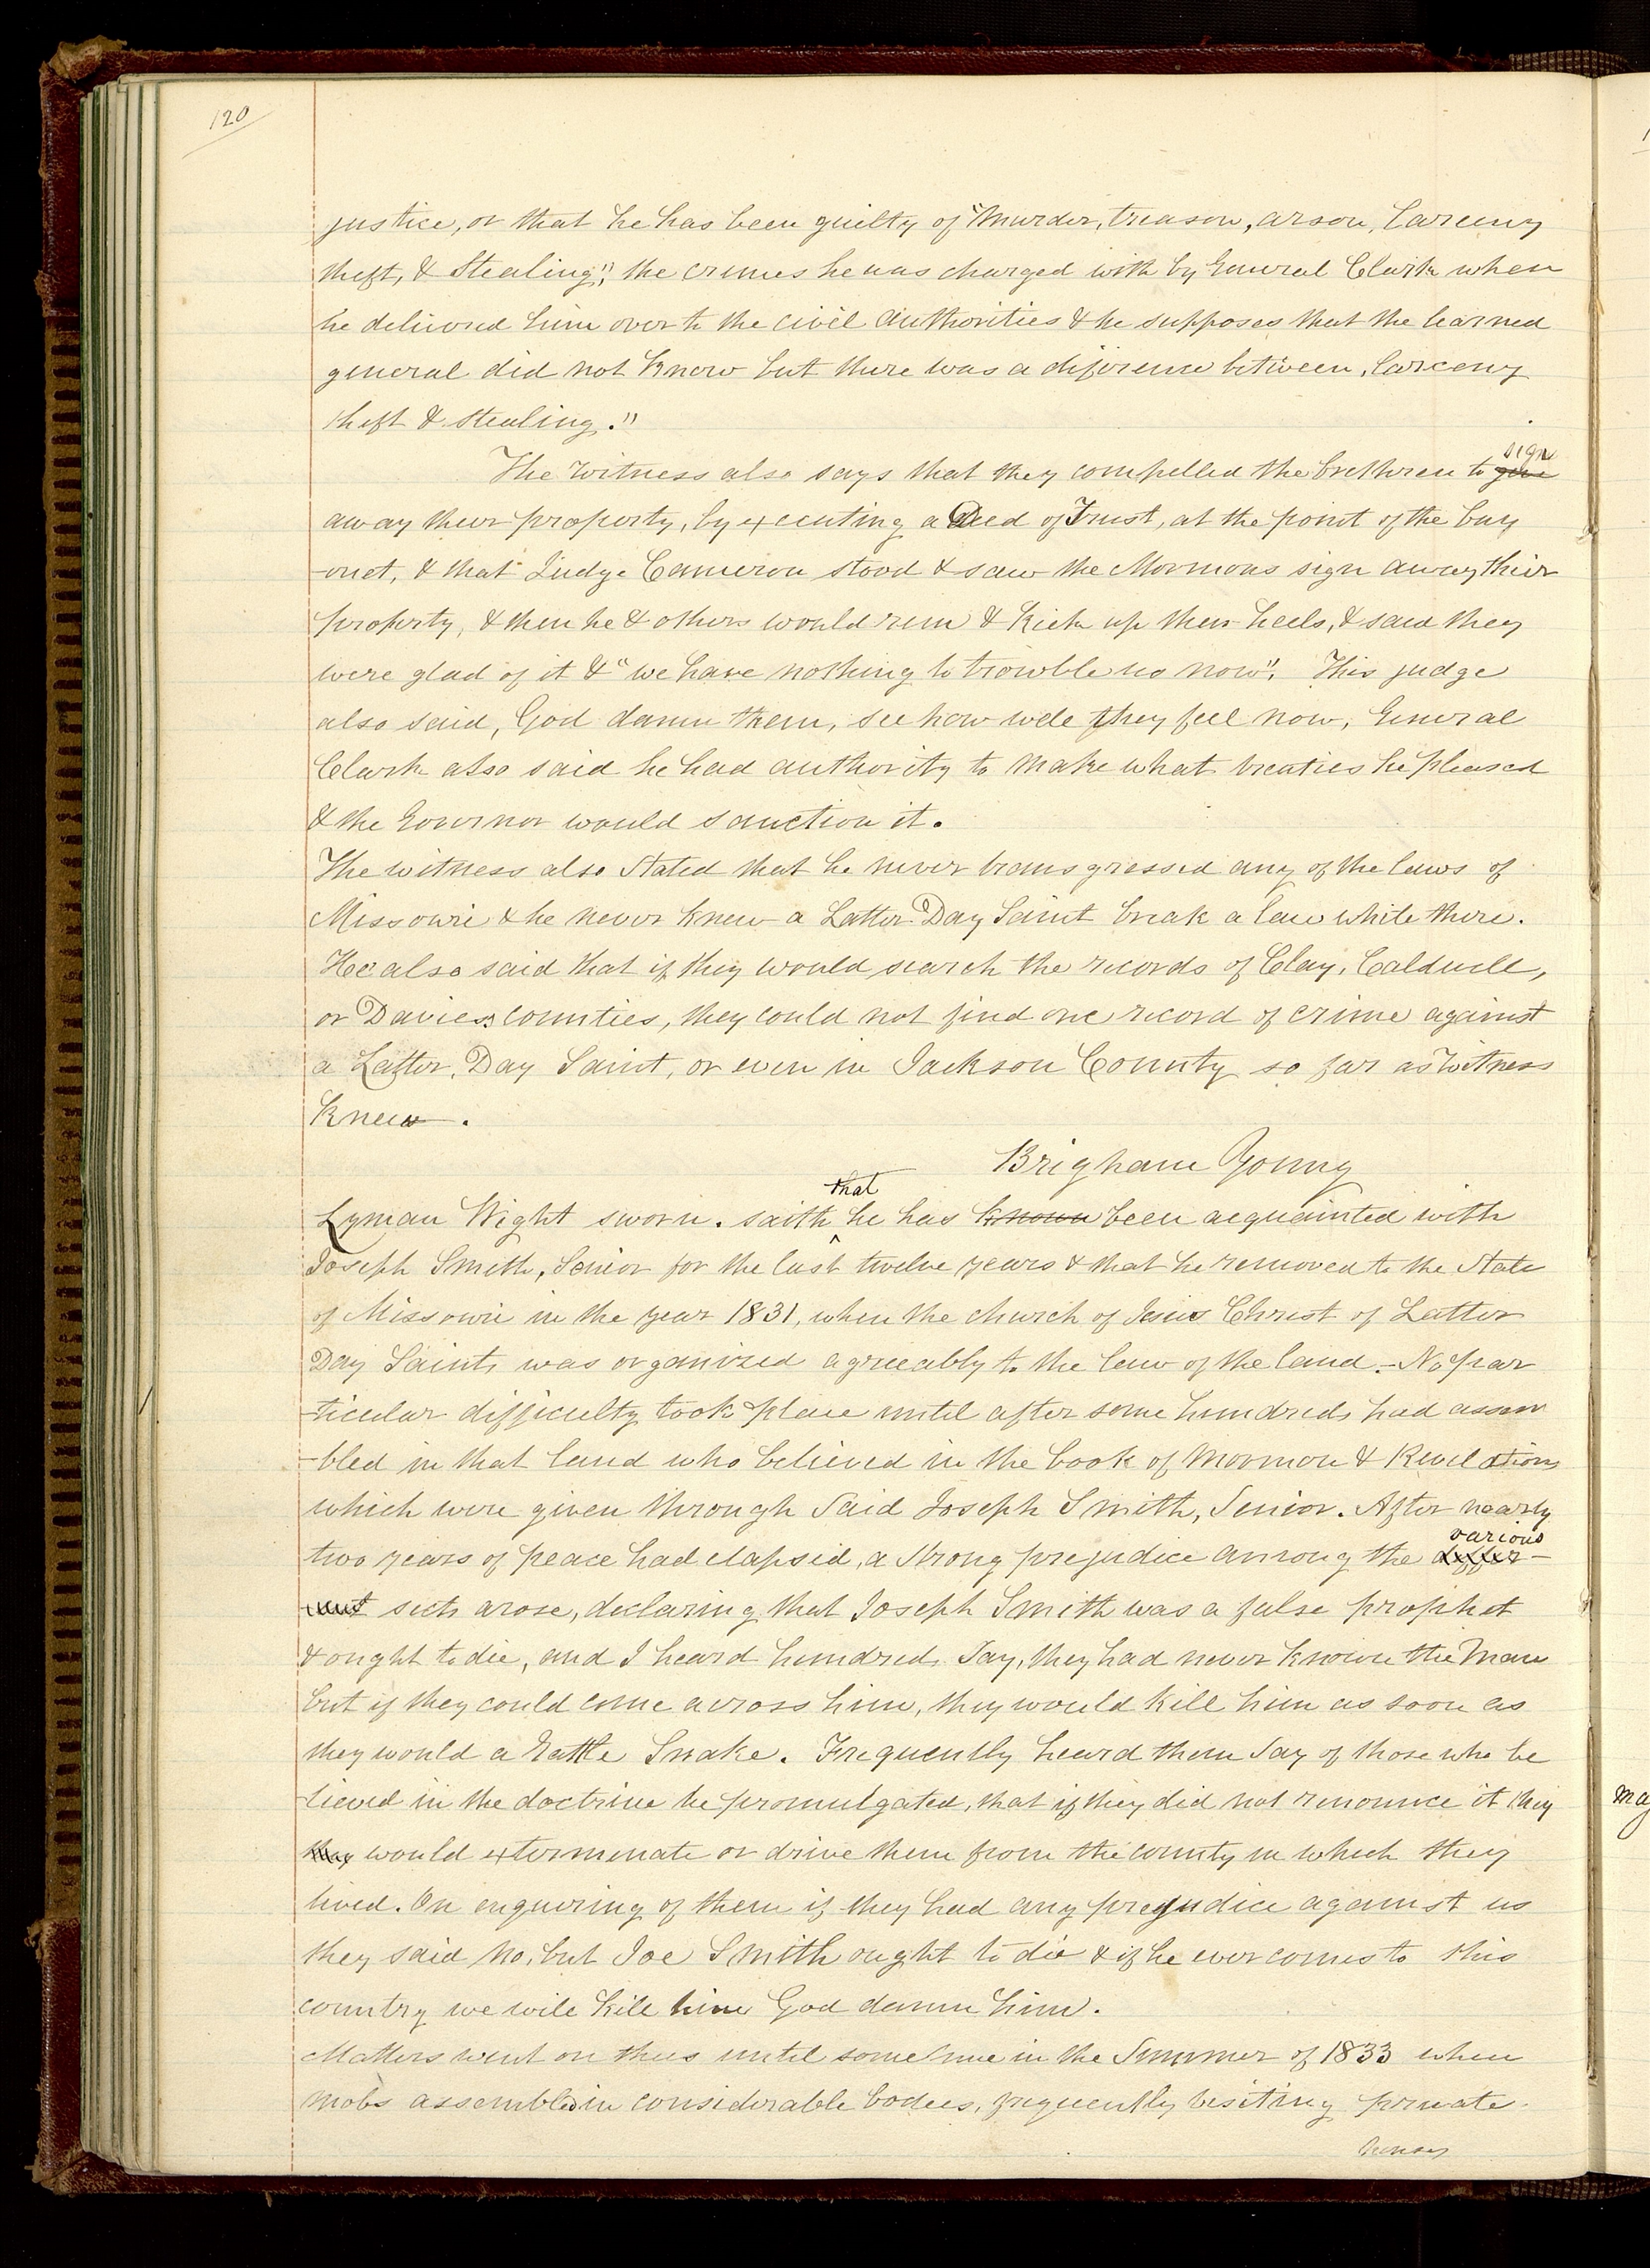 120
justice, or that he has been guilty of "Murder, treason, arson, Larceny
theft, & Stealing", the crimes he was charged with by General Clark when
he delivered him over to the civil authorities & he supposes that the learned
general did not know but there was a difference between, larceny
theft & stealing."
The Witness also says that they compelled the brethren to give sign
away their property, by executing a Deed of Trust, at the point of the bay
-onet, & that Judge Cameron stood & saw the Mormons sign away thier
property, & then he & others would run & kick up their heels, & said they
were glad of it & "we have nothing to trowble us now". This judge
also said, God damn them, see how well they feel now, General
Clark also said he had authority to make what treaties he pleased
& the Governor would sanction it.
The witness also stated that he never transgressed any of the laws of
Missowri & he never knew a Latter Day Saint break a law while there.
He also said that if they would search the records of Clay, Caldwell,
or Daviess counties, they could not find one record of crime against
a Latter, Day Saint, or even in Jackson County so far as Witness
knew.
Brigham Young
Lyman Wight sworn. saith that he has known been acquainted with
Joseph Smith, Senior for the last twelve years & that he removed to the State
of Missowri in the year 1831, when the church of Jesus Christ of Latter
Day Saints was organized agreeably to the law of the land.- No par
-ticular difficulty took place until after some hundreds had assem
-bled in that land who believed in the book of Mormon & Revelations
which were given through Said Joseph Smith, Senior. After nearly
two years of peace had elapsed, a strong prejudice among the differ- various
-ent sects arose, declaring that Joseph Smith was a false prophet
& ought to die, and I heard hundreds Say, they had never known the Man
but if they could come across him, they would kill him as soon as
they would a Rattle Snake. Frequently heard them Say of those who be
lieved in the doctrine he promulgated, that if they did not renounce it they
they would exterminate or drive them from the county in which they
lived. On enquering of them if they had any prejudice against us
they said No, but Joe Smith ought to die & if he ever comes to this
country we will kill him God damn him.
Matters went on thus until some time in the Summer of 1833 when
mobs assembled in considerable bodies, frequently visiting private
houses